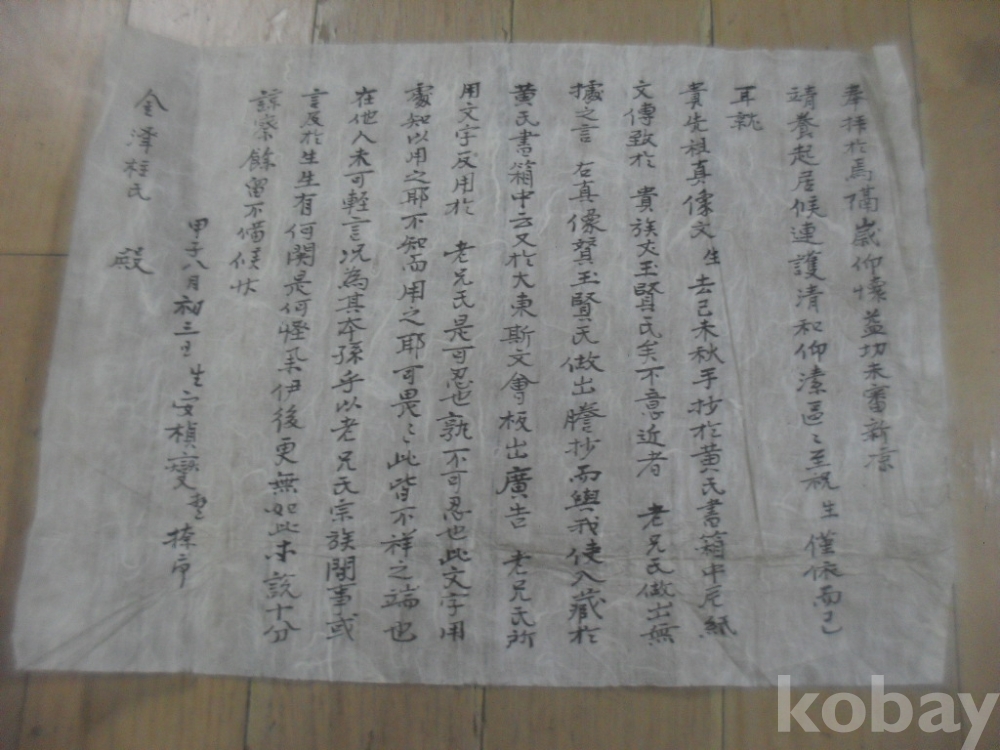 奉拜於焉隔歲仰懷益切未審新凉
靖養起居候連護清和仰溸區〻至祝 生 僅依而已
耳就
貴先祖真像文 生 去己未秋手抄於黃氏書箱中 紙
文傳致於 貴族丈玉賢氏矣不意近者 老兄氏做出無
據之言 右真像贊玉賢氏做出謄抄而與我使入藏於
黃氏書箱中云又於大東斯文會板出廣告 老兄氏所
用文字反用於 老兄氏是可忍也孰不可忍也此文字用
處知以用之耶不知而用之耶可畏〻此皆不祥之端也
在他人未可輕言况為其本孫乎以老兄氏宗族間事或
言及於生生有何関是何怪 伊後更無如此 說十分
諒察餘留不備候狀
甲子八月初三日 生 安楨 拜
金澤柱氏 殿
kobay